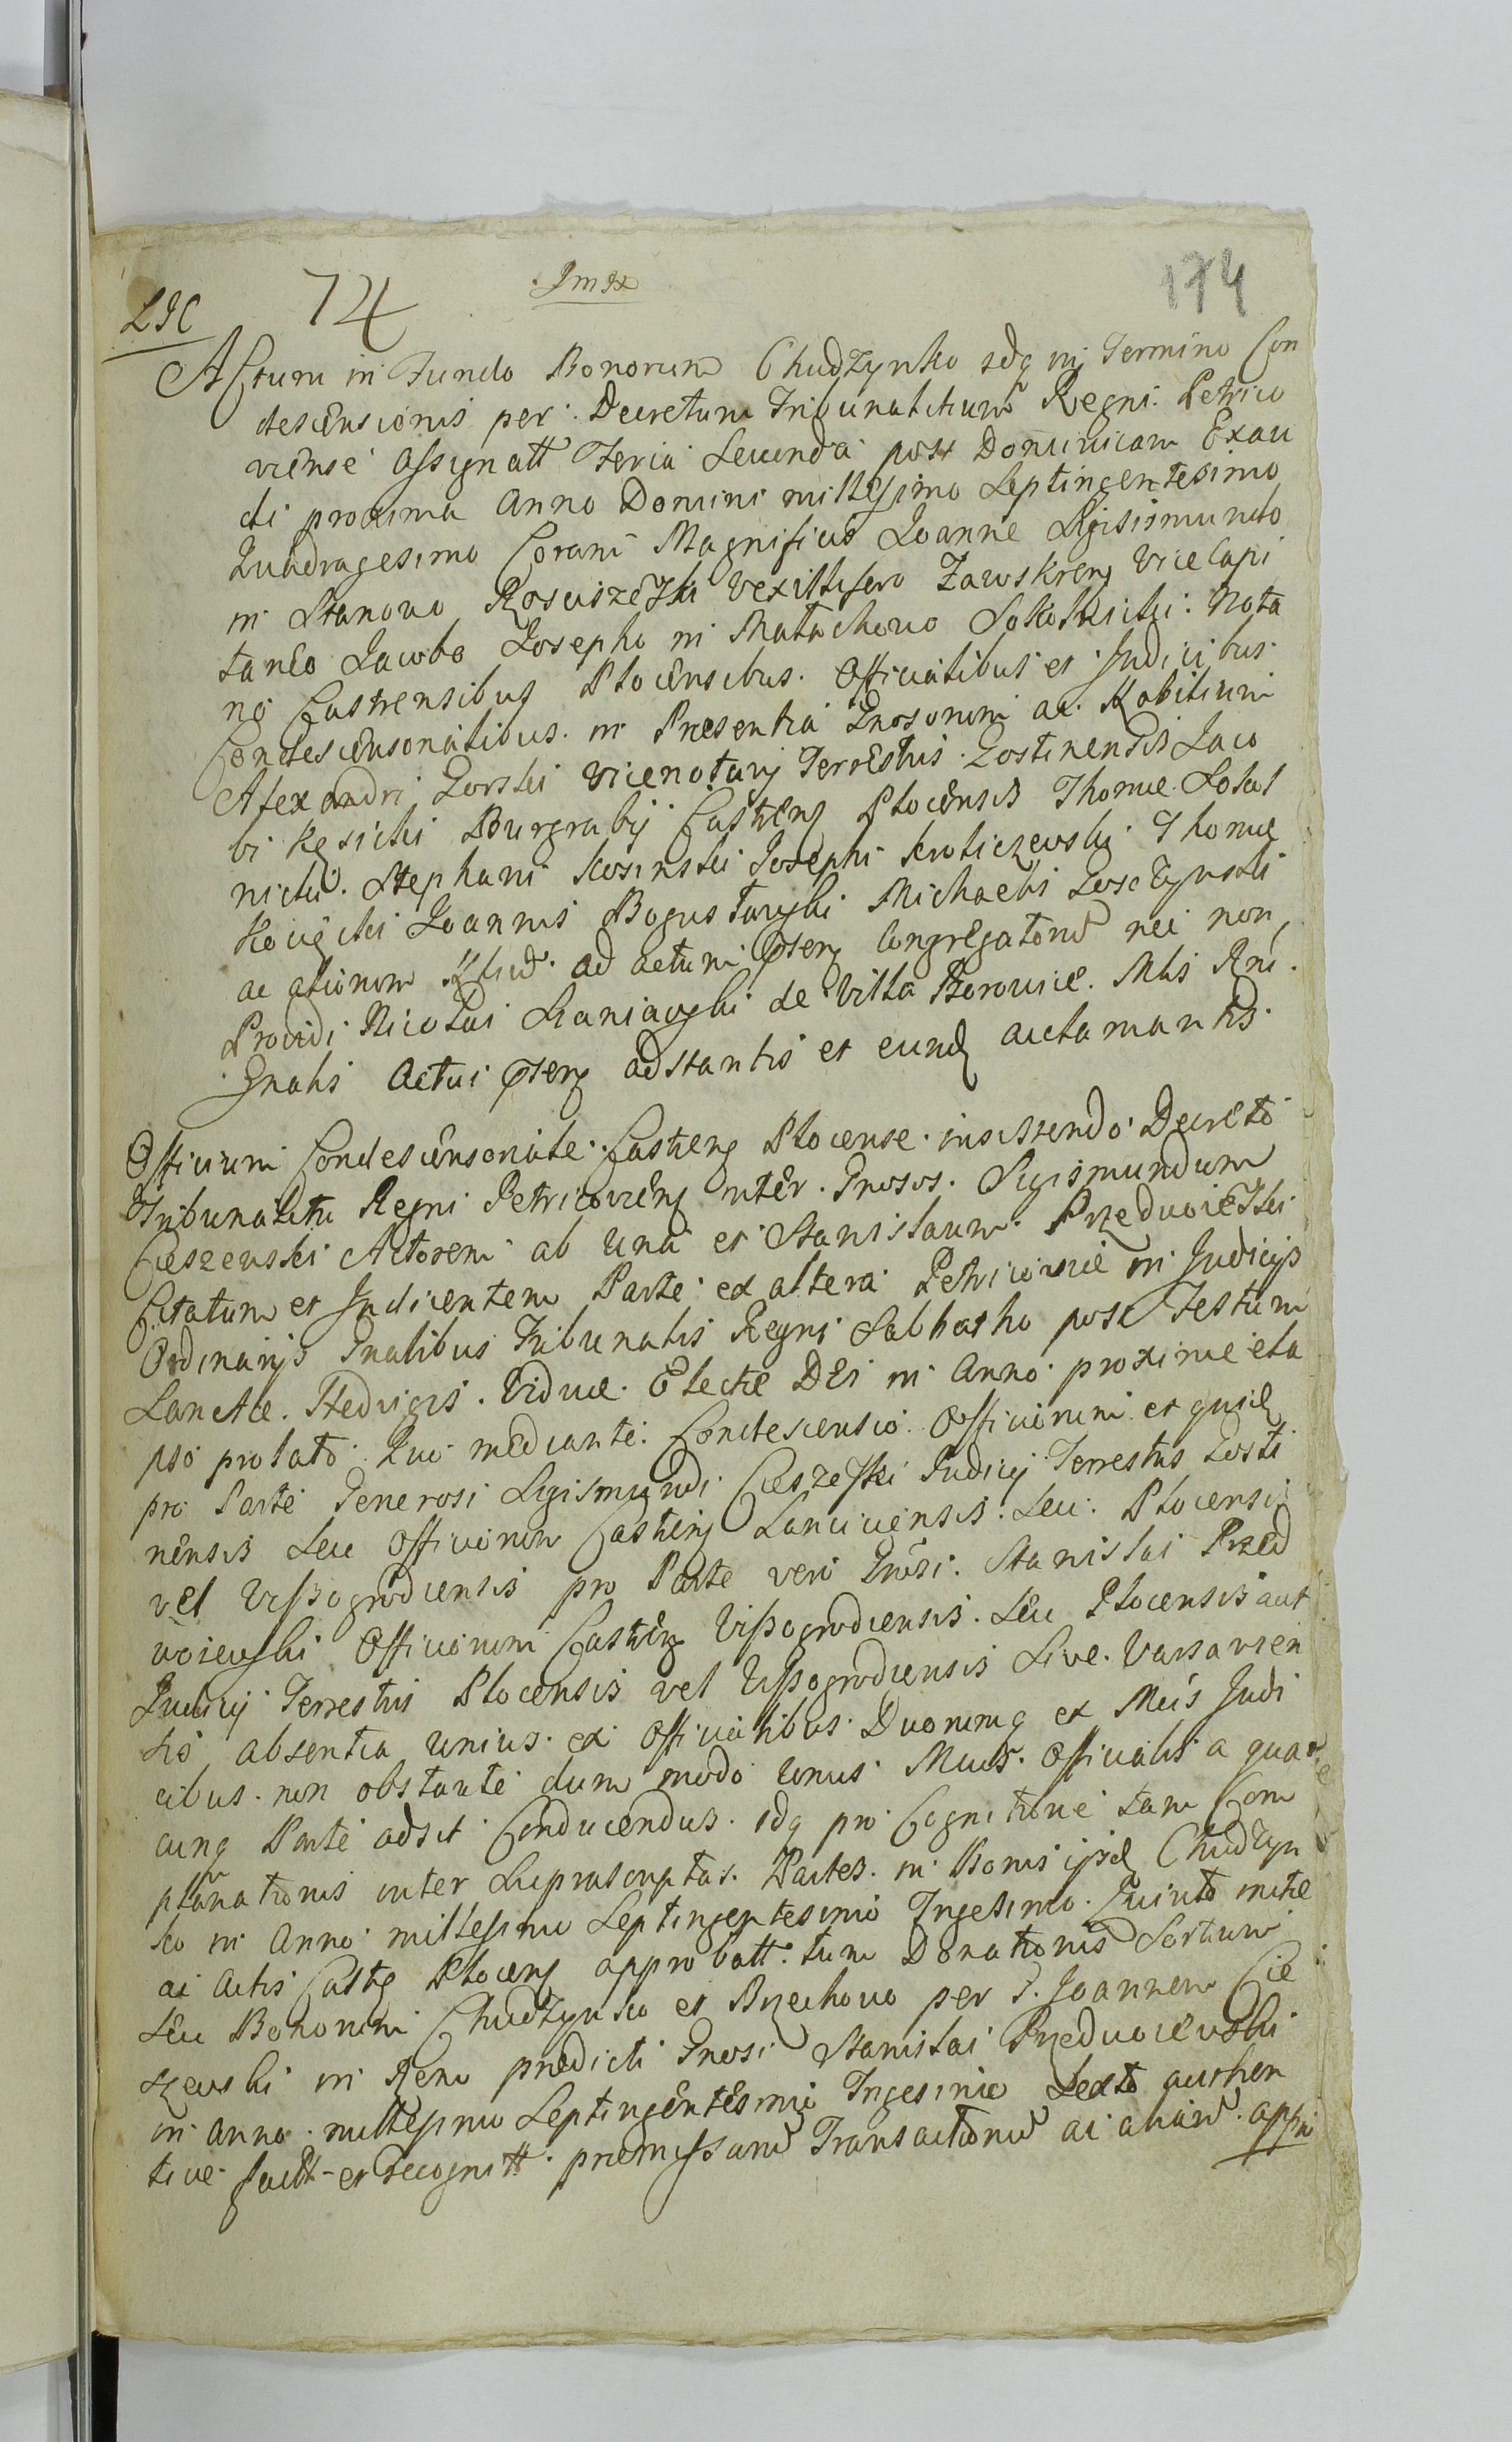 174
74
LIC
Actum in Fundo Bonorum Chudzynko idq in Termino Con
descensionis per Decretum Tribunalitium Regni Petrico
viense assignatt Feria Secunda post Dominicam Exau
di proxima Anno Domini millesimo Septingentesimo
Quadragesimo Coram Magnificis Joanne Sigismundo
in Stanowo Rosciszewski Vexillifero Zawskrens Vice Capi
taneo Jacobo Josepho in Malachowo Sokolnicki Nota
rio Castrensibus Plocensibus Officialibus et Judicibus
Condescensonalibus in Presentia Gnosorum ac Nobilium
Alexandri Gorski Vicenotarij Terrestris Gostinensis Jaco
bi Kęsicki Burgrabij Castrens Plocensis Thomæ Sokol
nicki Stephani Kosinski Josephi Kroliczewski Thomæ
Joannis Boguslawski Michaelis
ac aliorum ad actum pnterz Congregatorum nec non
Providi Nicolai Staniawski de Villa Borowice Mtis Rni
Gnalis Actui pnterz adstantis et eund aclamantis
Officium Condescensonale Castrens Plocense insistendo Decreto
Tribunalitu Regni Petricoviens inter Gnosos Sigismundum
Cieszewski Actorem ab una et Stanislaum Przedwoiewski
Citatum et Indicentem Parte ex altera Petricoviæ in Judicijs
Ordinarijs Gnalibus Tribunalis Regni Sabbatho post Festum
Sanctæ Hedvigis Viduæ Electæ Dei in Anno proxime ela
pso prolato Quo mediante Condescensio Officiorum et quid
pro Parte Generosi Sigismundi Cieszewski Judicij Terrestris Gosti
nensis Seu Officiorum Castrens Lanciciensis Seu Plocensis
vel Vissogrodiensis pro Parte vero Gnosi Stanislai Przed
woiewski Officiorum Castrens Vissogrodiensis Seu Plocensis aut
Judicij Terrestris Plocensis vel Vissogrodiensis Sive Varsavien
sis absentia unius ex Officialibus Duorumq ex Mcis Judi
cibus non obstante dum modo Unus Mcus Officialis a qua
cunq Parte adsit Conducendus idq pro Cognitione tam Com
planationis inter Suprascriptas Partes in Bonis ijsd Chudzyn
ko in Anno millesimo Septingentesimo Trigesimo Quinto initæ
ac Actis Castr Plocens approbatt tum Donationis Sortium
Seu Bonorum Chudzynko et Brzechowo per G. Joannem Cie
szewski in Rem predicti Gnosi Stanislai Przedwoiewski
in Anno millesimo Septingentesimo Trigesimo Sexto authen
tice factt et recognitt premissarum Transactionum ac aliarum